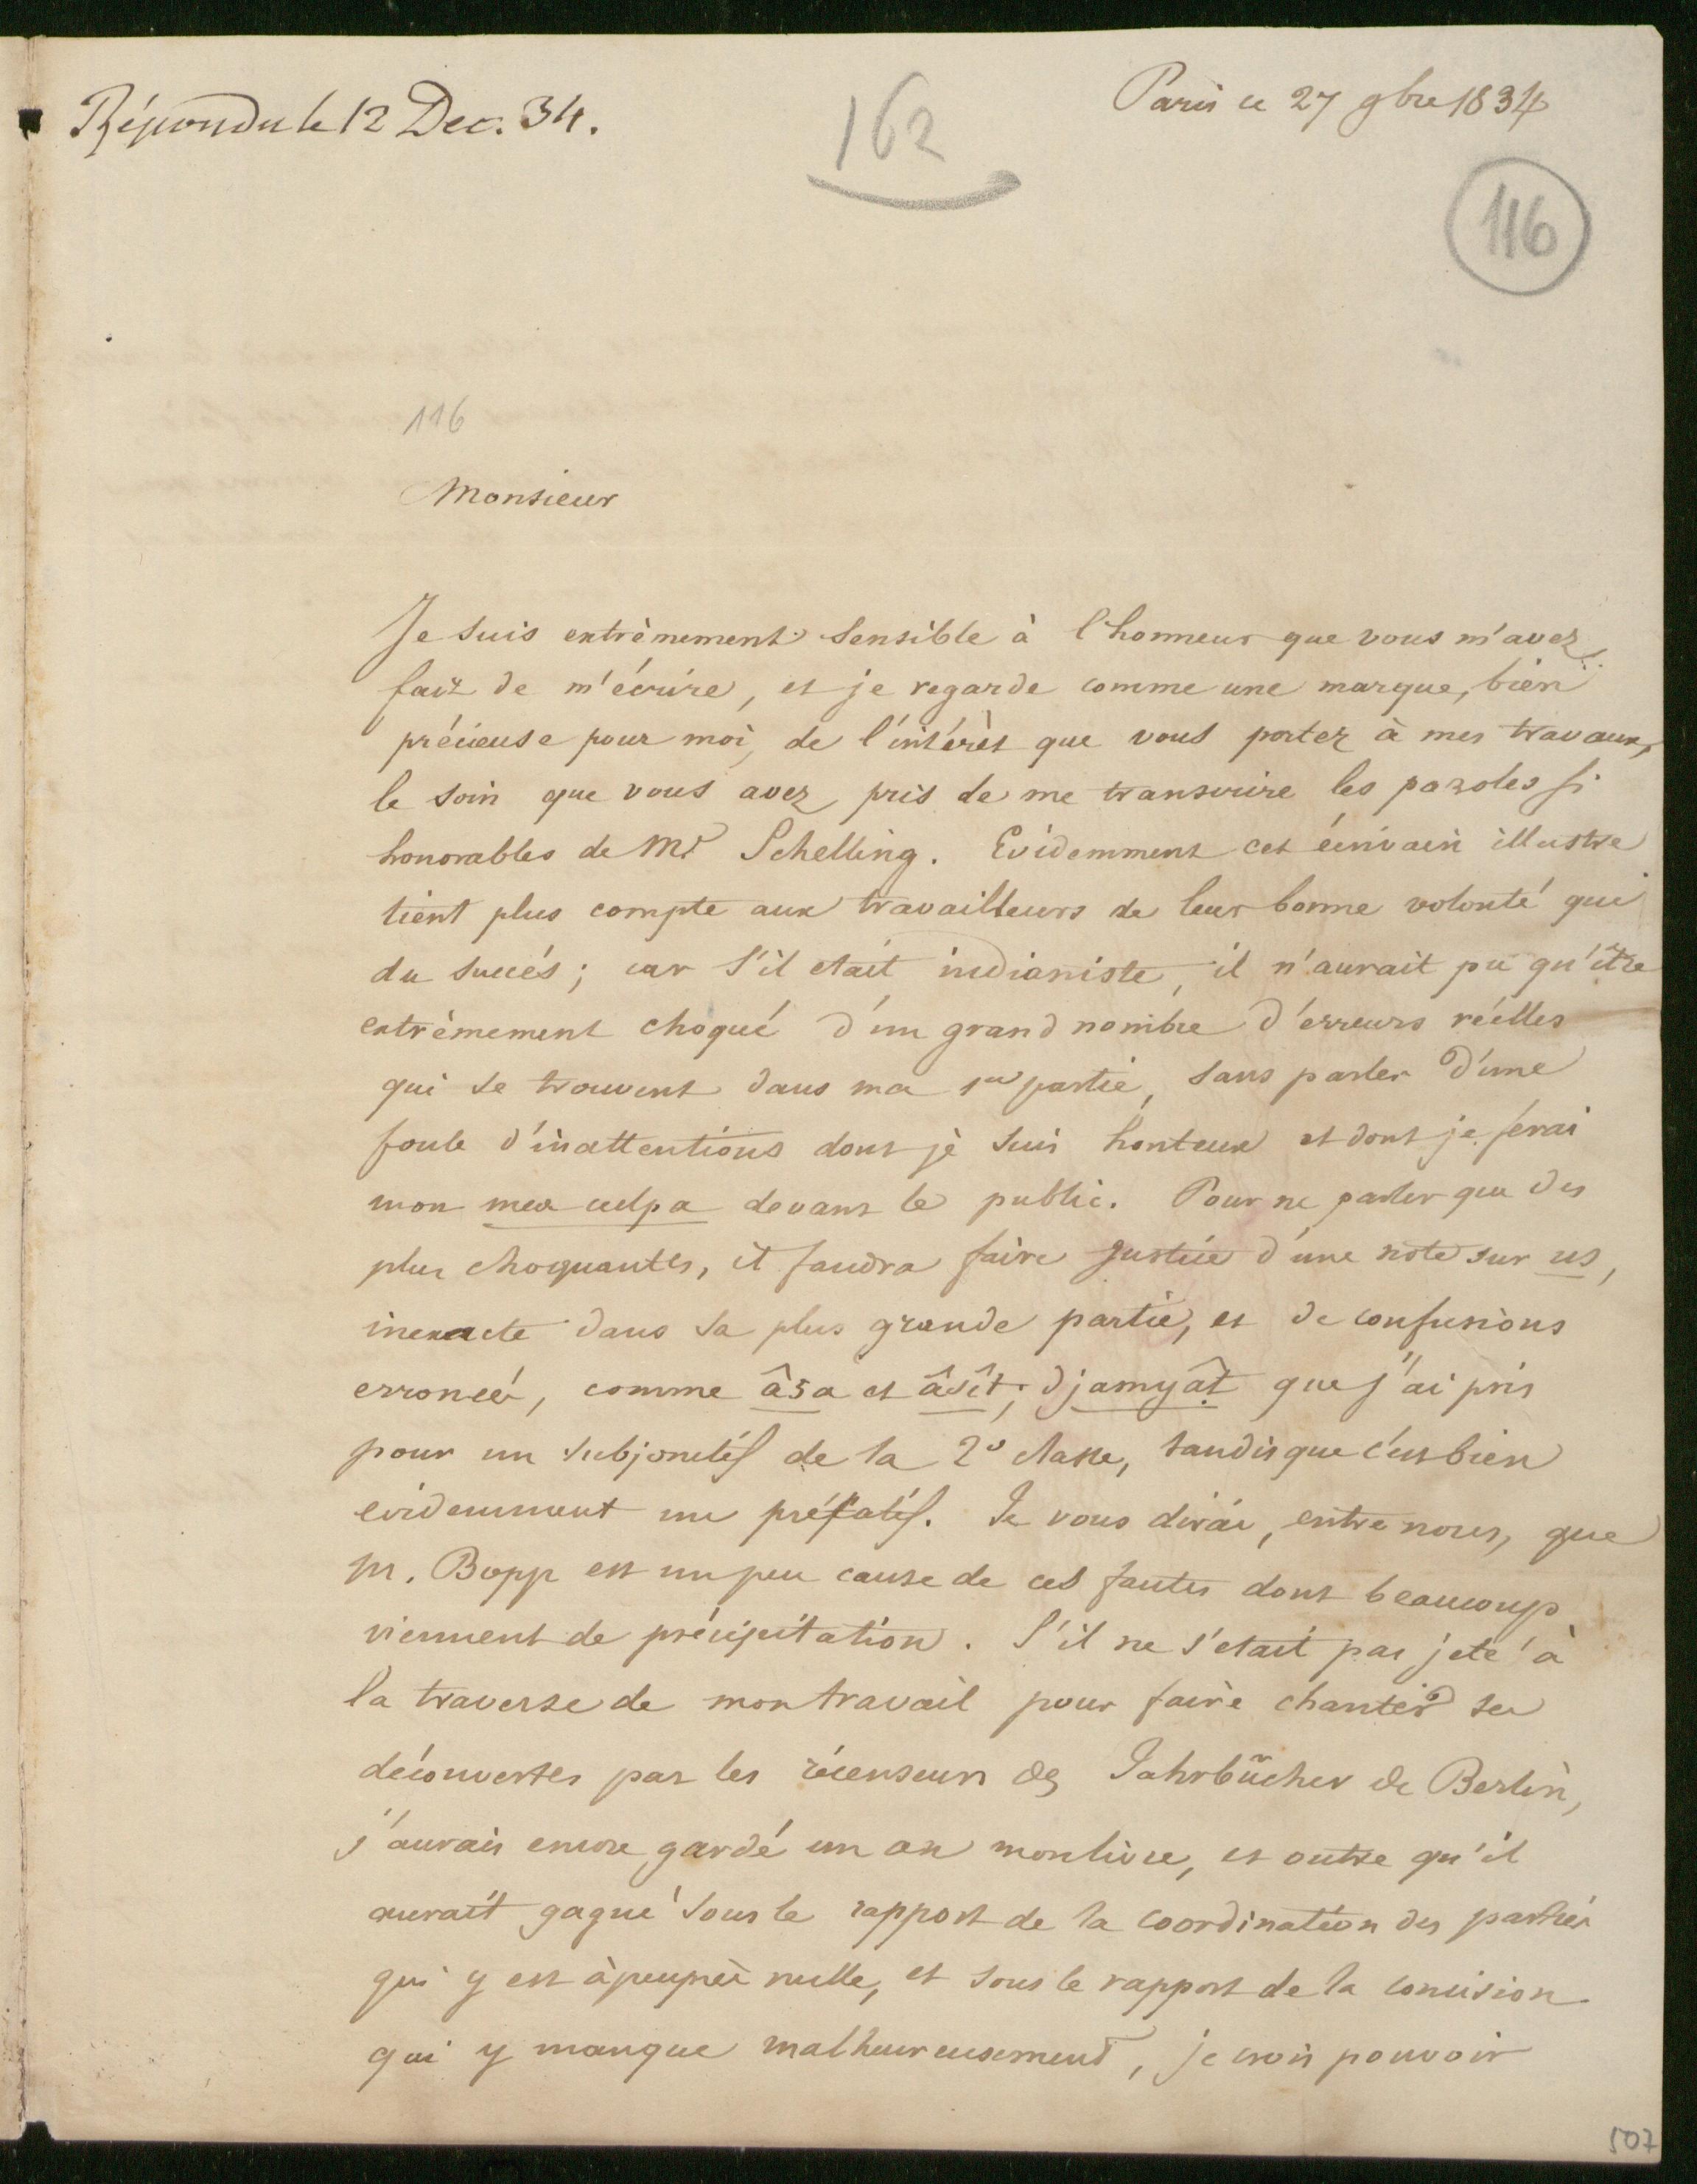 Répondu le 12 Dec. 34.
162
Paris ce 27 9bre 1834
116
116
Monsieur
Je suis extrèmement sensible à l'honneur que vous m'avez
fait de m'écrire, et je regarde comme une marque, bien
précieuse pour moi, de l'intérèt que vous portez à mes travaux,
le soin que vous avez pris de me transcrire les paroles si
honorables de Mr Schelling. Evidemment cet écrivain illustre
tient plus compte aux travailleurs de leur bonne volonté que
du succés; car s'il etait indianiste, il n'aurait pu qu'être
extrèmement choqué d'un grand nombre d'erreurs réelles
qui se trouvent dans ma 1re partie, sans parler d'une
foule d'inattentions dont je suis honteux et dont je ferai
mon mea culpa devant le public. Pour ne parler que des
plus choquantes, il faudra faire justice d'une note sur us,
inexacte dans sa plus grande partie, et de confusions
erronées, comme âsa et âsît; djamyât que j'ai pris
pour un subjonctif de la 2e classe, tandis que c'est bien
evidemment un précatif. Je vous dirai, entre nous, que
M. Bopp est un peu cause de ces fautes dont beaucoup
viennent de précipitation. S'il ne s'etait pas jeté à
la traverse de mon travail pour faire chanter ses
découvertes par les récenseurs des Jahrbücher de Berlin,
j'aurais encore gardé un an mon livre, et outre qu'il
aurait gagné sous le rapport de la coordination des parties
qui y est àpeuprès nulle, et sous le rapport de la concision
qui y manque malheureusement, je crois pouvoir
507